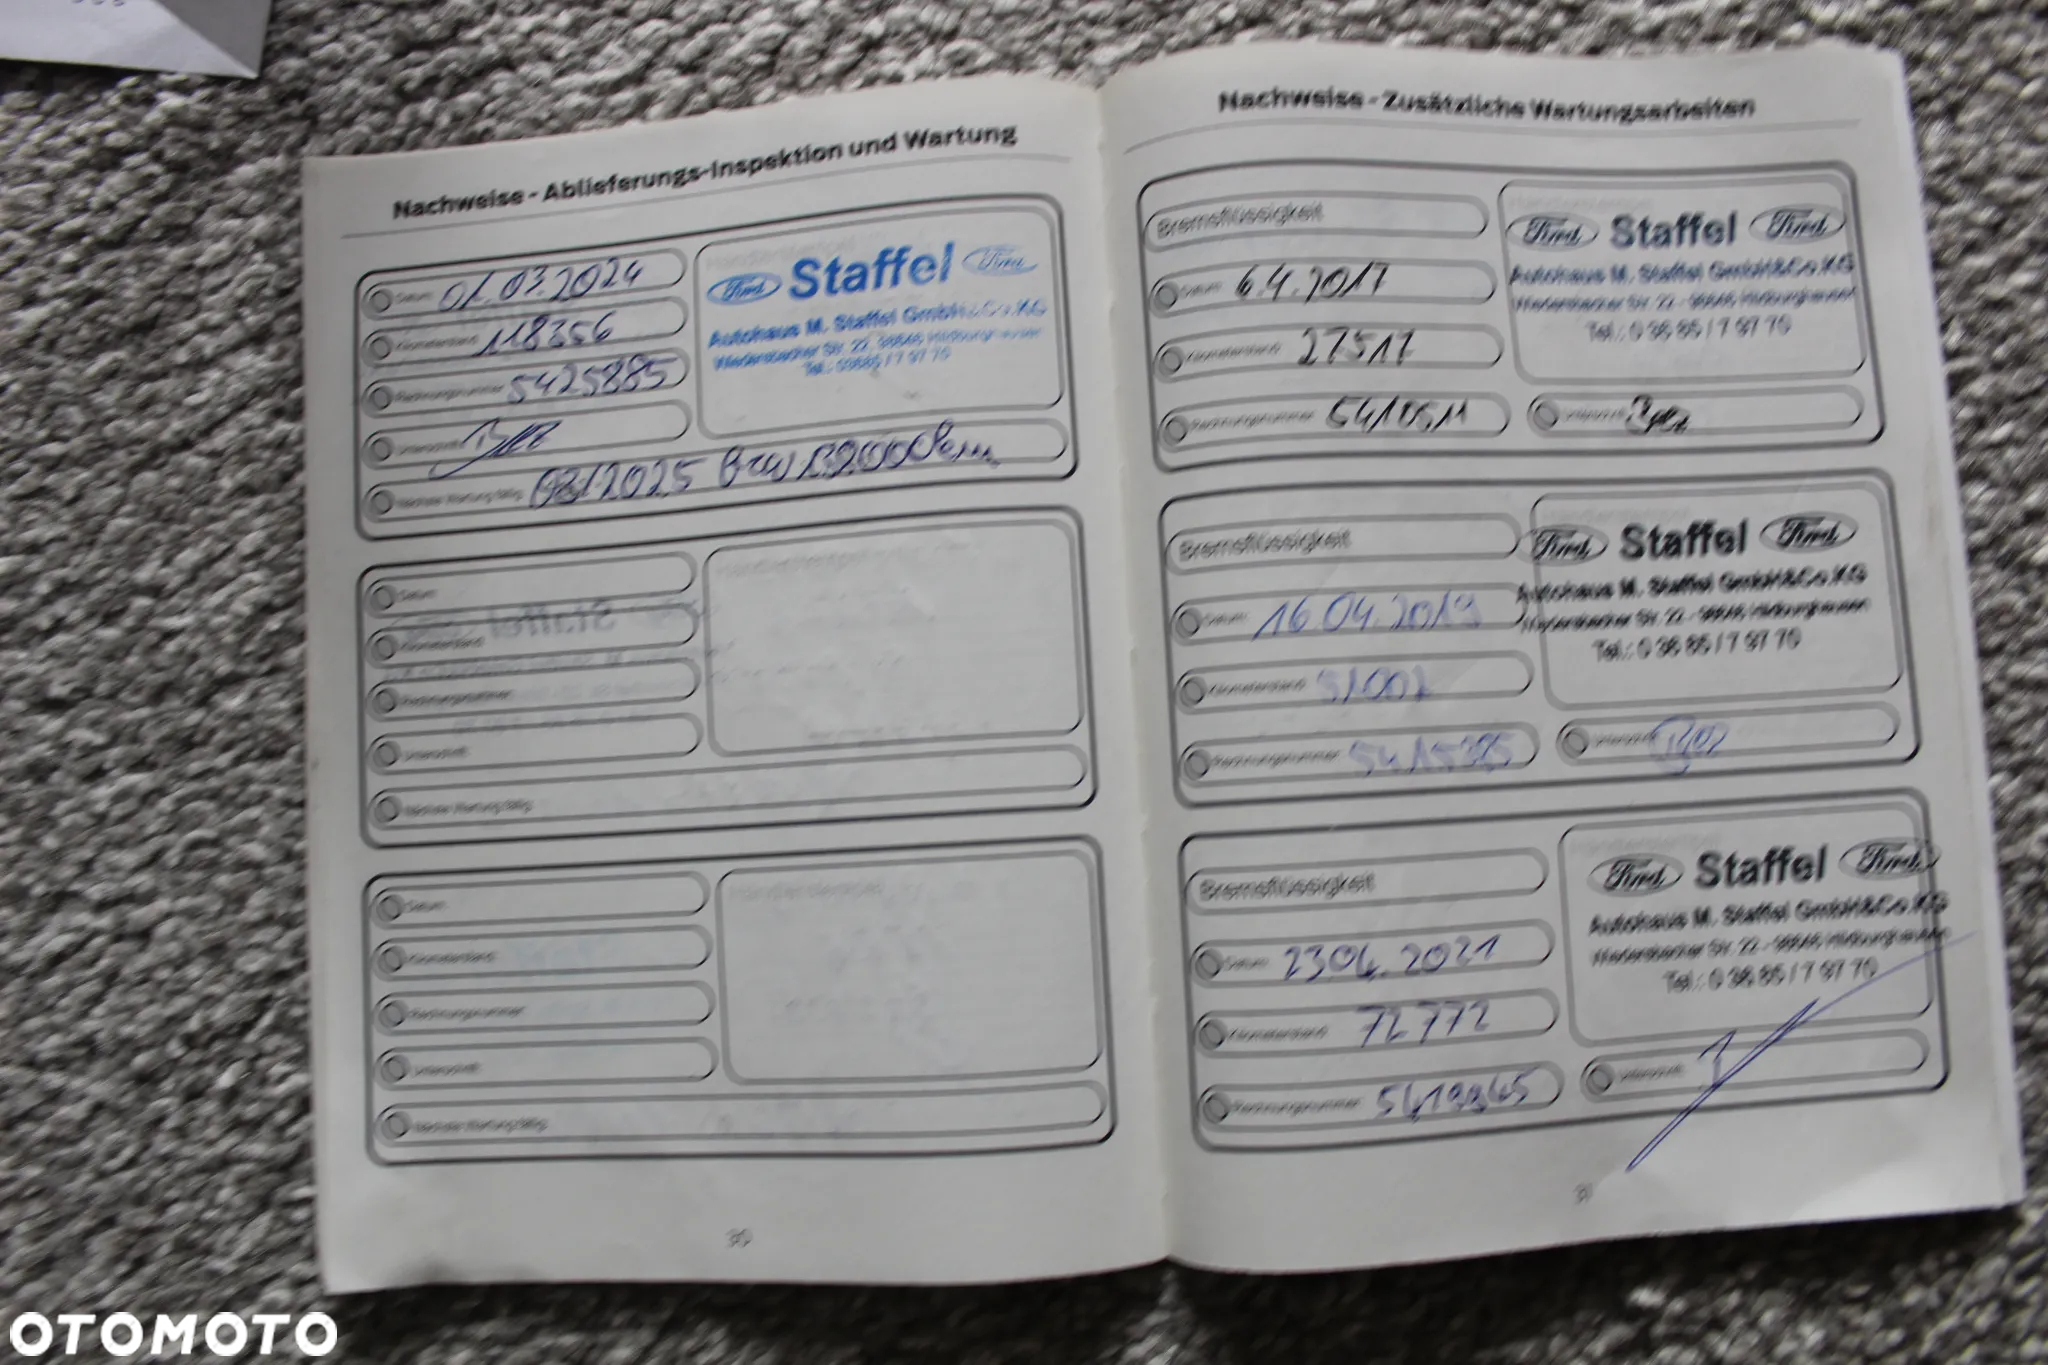 Nachweise - Ablieferungs-Inspektion und Wartung
Datum 01.03.2024
Kilometerstand 118356
Rechnungsnummer 5425885
Unterschrift
Nächste Wartung fällig 03/2025 bzw
Ford Staffel Ford
Autohaus M. Staffel GmbH & Co. KG
Tel.: 03685 / 7 97 70
Datum
Kilometerstand
Rechnungsnummer
Unterschrift
Nächste Wartung fällig
Händlerstempel
Datum
Kilometerstand
Rechnungsnummer
Unterschrift
Nächste Wartung fällig
Händlerstempel
30
Nachweise - Zusätzliche Wartungsarbeiten
Bremsflüssigkeit
Datum 6.4.2017
Kilometerstand 27517
Rechnungsnummer
Ford Staffel Ford
Autohaus M. Staffel GmbH & Co. KG
Tel.: 0 36 85 / 7 97 70
Unterschrift
Bremsflüssigkeit
Datum 16.04.2019
Kilometerstand
Rechnungsnummer
Ford Staffel Ford
Autohaus M. Staffel GmbH & Co. KG
Tel.: 0 36 85 / 7 97 70
Unterschrift
Bremsflüssigkeit
Datum 23.04.2021
Kilometerstand 72772
Rechnungsnummer
Ford Staffel Ford
Autohaus M. Staffel GmbH & Co. KG
Tel.: 0 36 85 / 7 97 70
Unterschrift
31
OTOMOTO